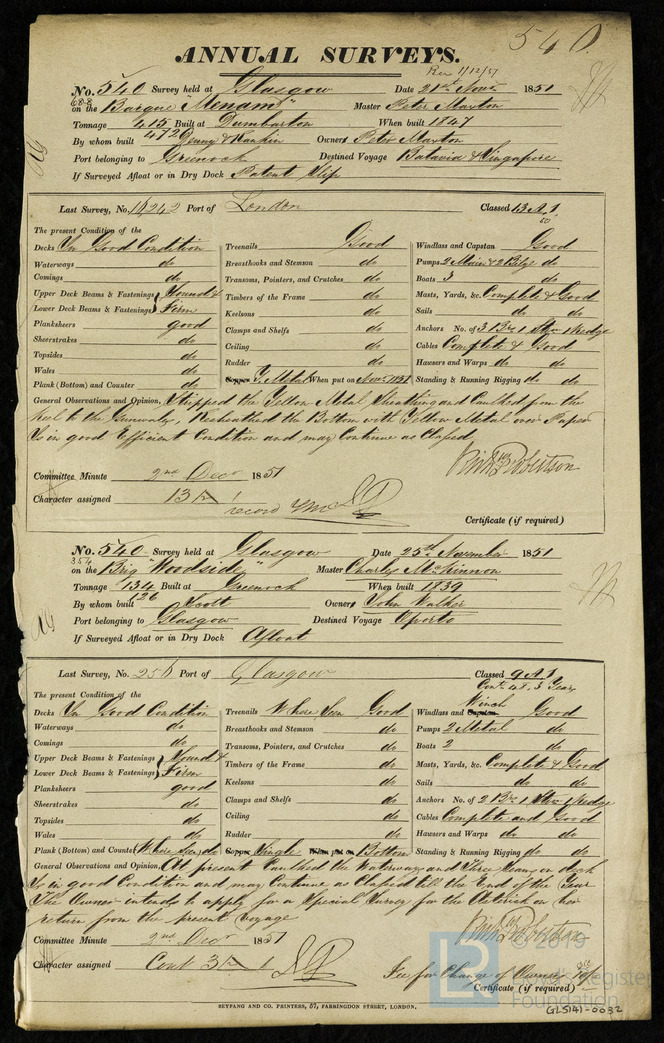 540.
ANNUAL SURVEYS.
Rec 1/12/51
No. 540 Survey held at Glasgow Date 21st Novr. 1851
688
on the Barque "Menam" Master Peter Maxton
Tonnage 415 Built at Dumbarton When built 1847
472
By whom built Denny & Rankin Owners Peter Maxton
Port belonging to Greenock Destined Voyage Batavia & Singapore
If Surveyed Afloat or in Dry Dock Patent Slip
Last Survey, No. 14242 Port of London Classed 13 A 1.
50
The present Condition of the
Decks In Good Condition Treenails Good Windlass and Capstan Good
Waterways do Breasthooks and Stemson do Pumps 2 Main & 2 Bilge do
Comings do Transoms, Pointers, and Crutches do Boats 3 do
Upper Deck Beams & Fastenings } Sound & Timbers of the Frame do Masts, Yards, &c. Complete & Good
Lower Deck Beams & Fastenings } Firm Keelsons do Sails do do
Planksheers good Clamps and Shelfs do Anchors No. of 3 Brs 1 Strm 1 Kedge
Sheerstrakes do Ceiling do Cables Complete & Good
Topsides do Rudder do Hawsers and Warps do do
Wales do Copper Y. Metal When put on Novr. 1851 Standing & Running Rigging do do
Plank (Bottom) and Counter do
General Observations and Opinion, Stripped the Yellow Metal Sheathing and Caulked from the
keel to the Gunwales, Resheathed the Bottom with Yellow Metal over Paper
Is in good Efficient Condition and may Continue as Classed,
Committee Minute 2nd Decr 1851
Character assigned 13 A 1
record
Certificate (if required)
No. 540 Survey held at Glasgow Date 25th November 1851
354
on the Brig "Woodside" Master Charles McKinnon
Tonnage 134 Built at Greenock When built 1839
126
By whom built Scott Owners John Walker
Port belonging to Glasgow Destined Voyage Oporto
If Surveyed Afloat or in Dry Dock Afloat
Last Survey, No. 256 Port of Glasgow Classed 9 A 1
Contd 48, 3 Years
The present Condition of the
Winch
Decks In Good Condition Treenails Where Seen Good Windlass and Capstan Good
Waterways do Breasthooks and Stemson do Pumps 2 Metal do
Comings do Transoms, Pointers, and Crutches do Boats 2 do
Upper Deck Beams & Fastenings } Sound & Timbers of the Frame do Masts, Yards, &c. Complete & Good
Lower Deck Beams & Fastenings } Firm Keelsons do Sails do do
Planksheers good Clamps and Shelfs do Anchors No. of 2 Brs 1 Strm 1 Kedge
Sheerstrakes do Ceiling do Cables Complete and Good
Topsides do Rudder do Hawsers and Warps do do
Wales do Copper Single When put on Bottom Standing & Running Rigging do do
Plank (Bottom) and Counter (Where Seen) do
General Observations and Opinion, At present Caulked the Waterways and Three Seams on deck
Is in good Condition and may Continue as Classed till the End of the Year
The Owner intends to apply for a Special Survey for the Asterisk on her
return from the present Voyage
Committee Minute 2nd Decr 1851
Character assigned Contd 3 A 1
Fee for Change of Owner
Certificate (if required)
BEYFANG AND CO. PRINTERS, 57, FARRINGDON STREET, LONDON.
LR © 2019
Lloyd's Register
Foundation
GLS141-0032